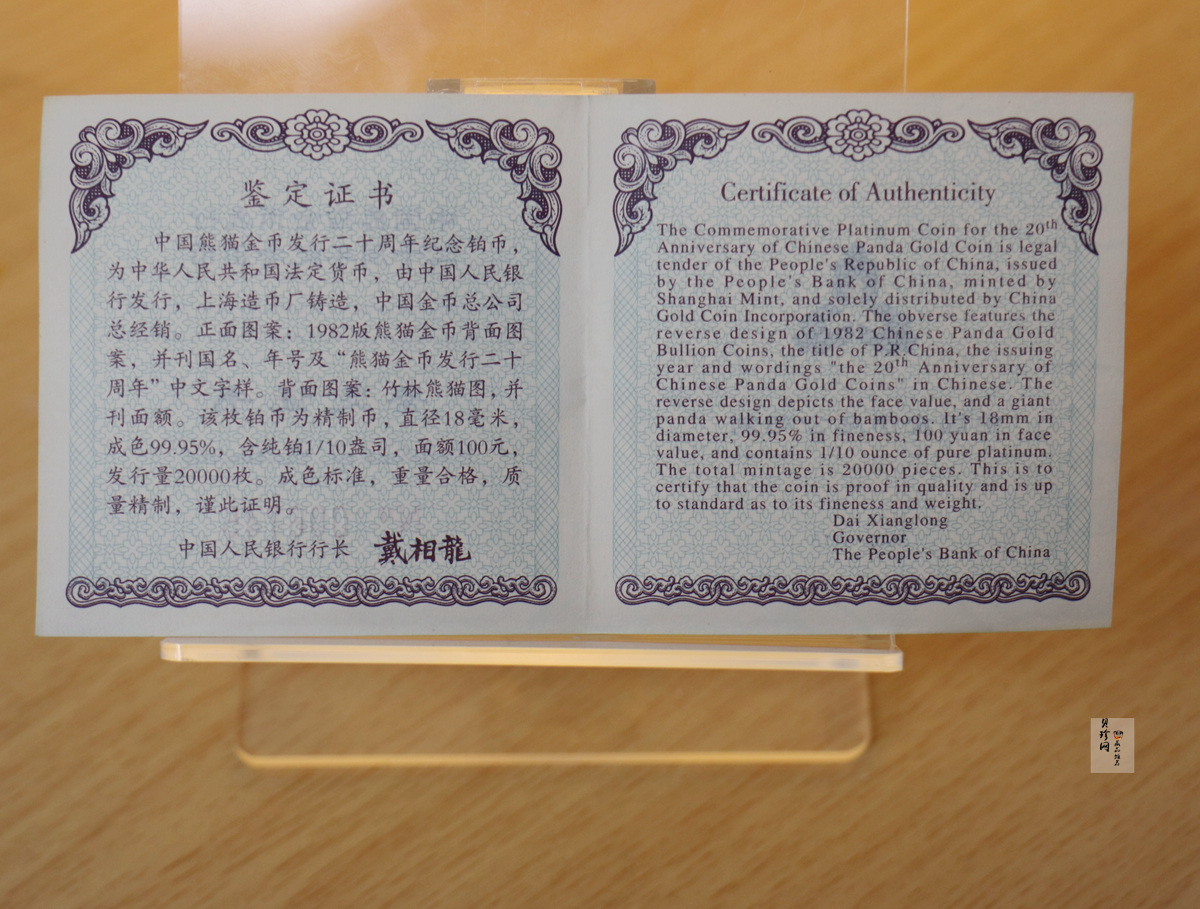 鉴定证书
中国熊猫金币发行二十周年纪念铂币，
为中华人民共和国法定货币，由中国人民银
行发行，上海造币厂铸造，中国金币总公司
总经销。正面图案：1982版熊猫金币背面图
案，并刊国名、年号及“熊猫金币发行二十
周年”中文字样。背面图案：竹林熊猫图，并
刊面额。该枚铂币为精制币，直径18毫米，
成色99.95%，含纯铂1/10盎司，面额100元，
发行量20000枚。成色标准，重量合格，质
量精制，谨此证明。
中国人民银行行长 戴相龍
Certificate of Authenticity
The Commemorative Platinum Coin for the 20th
Anniversary of Chinese Panda Gold Coin is legal
tender of the People's Republic of China, issued
by the People's Bank of China, minted by
Shanghai Mint, and solely distributed by China
Gold Coin Incorporation. The obverse features the
reverse design of 1982 Chinese Panda Gold
Bullion Coins, the title of P.R.China, the issuing
year and wordings "the 20th Anniversary of
Chinese Panda Gold Coins" in Chinese. The
reverse design depicts the face value, and a giant
panda walking out of bamboos. It's 18mm in
diameter, 99.95% in fineness, 100 yuan in face
value, and contains 1/10 ounce of pure platinum.
The total mintage is 20000 pieces. This is to
certify that the coin is proof in quality and is up
to standard as to its fineness and weight.
Dai Xianglong
Governor
The People's Bank of China
贝珍网